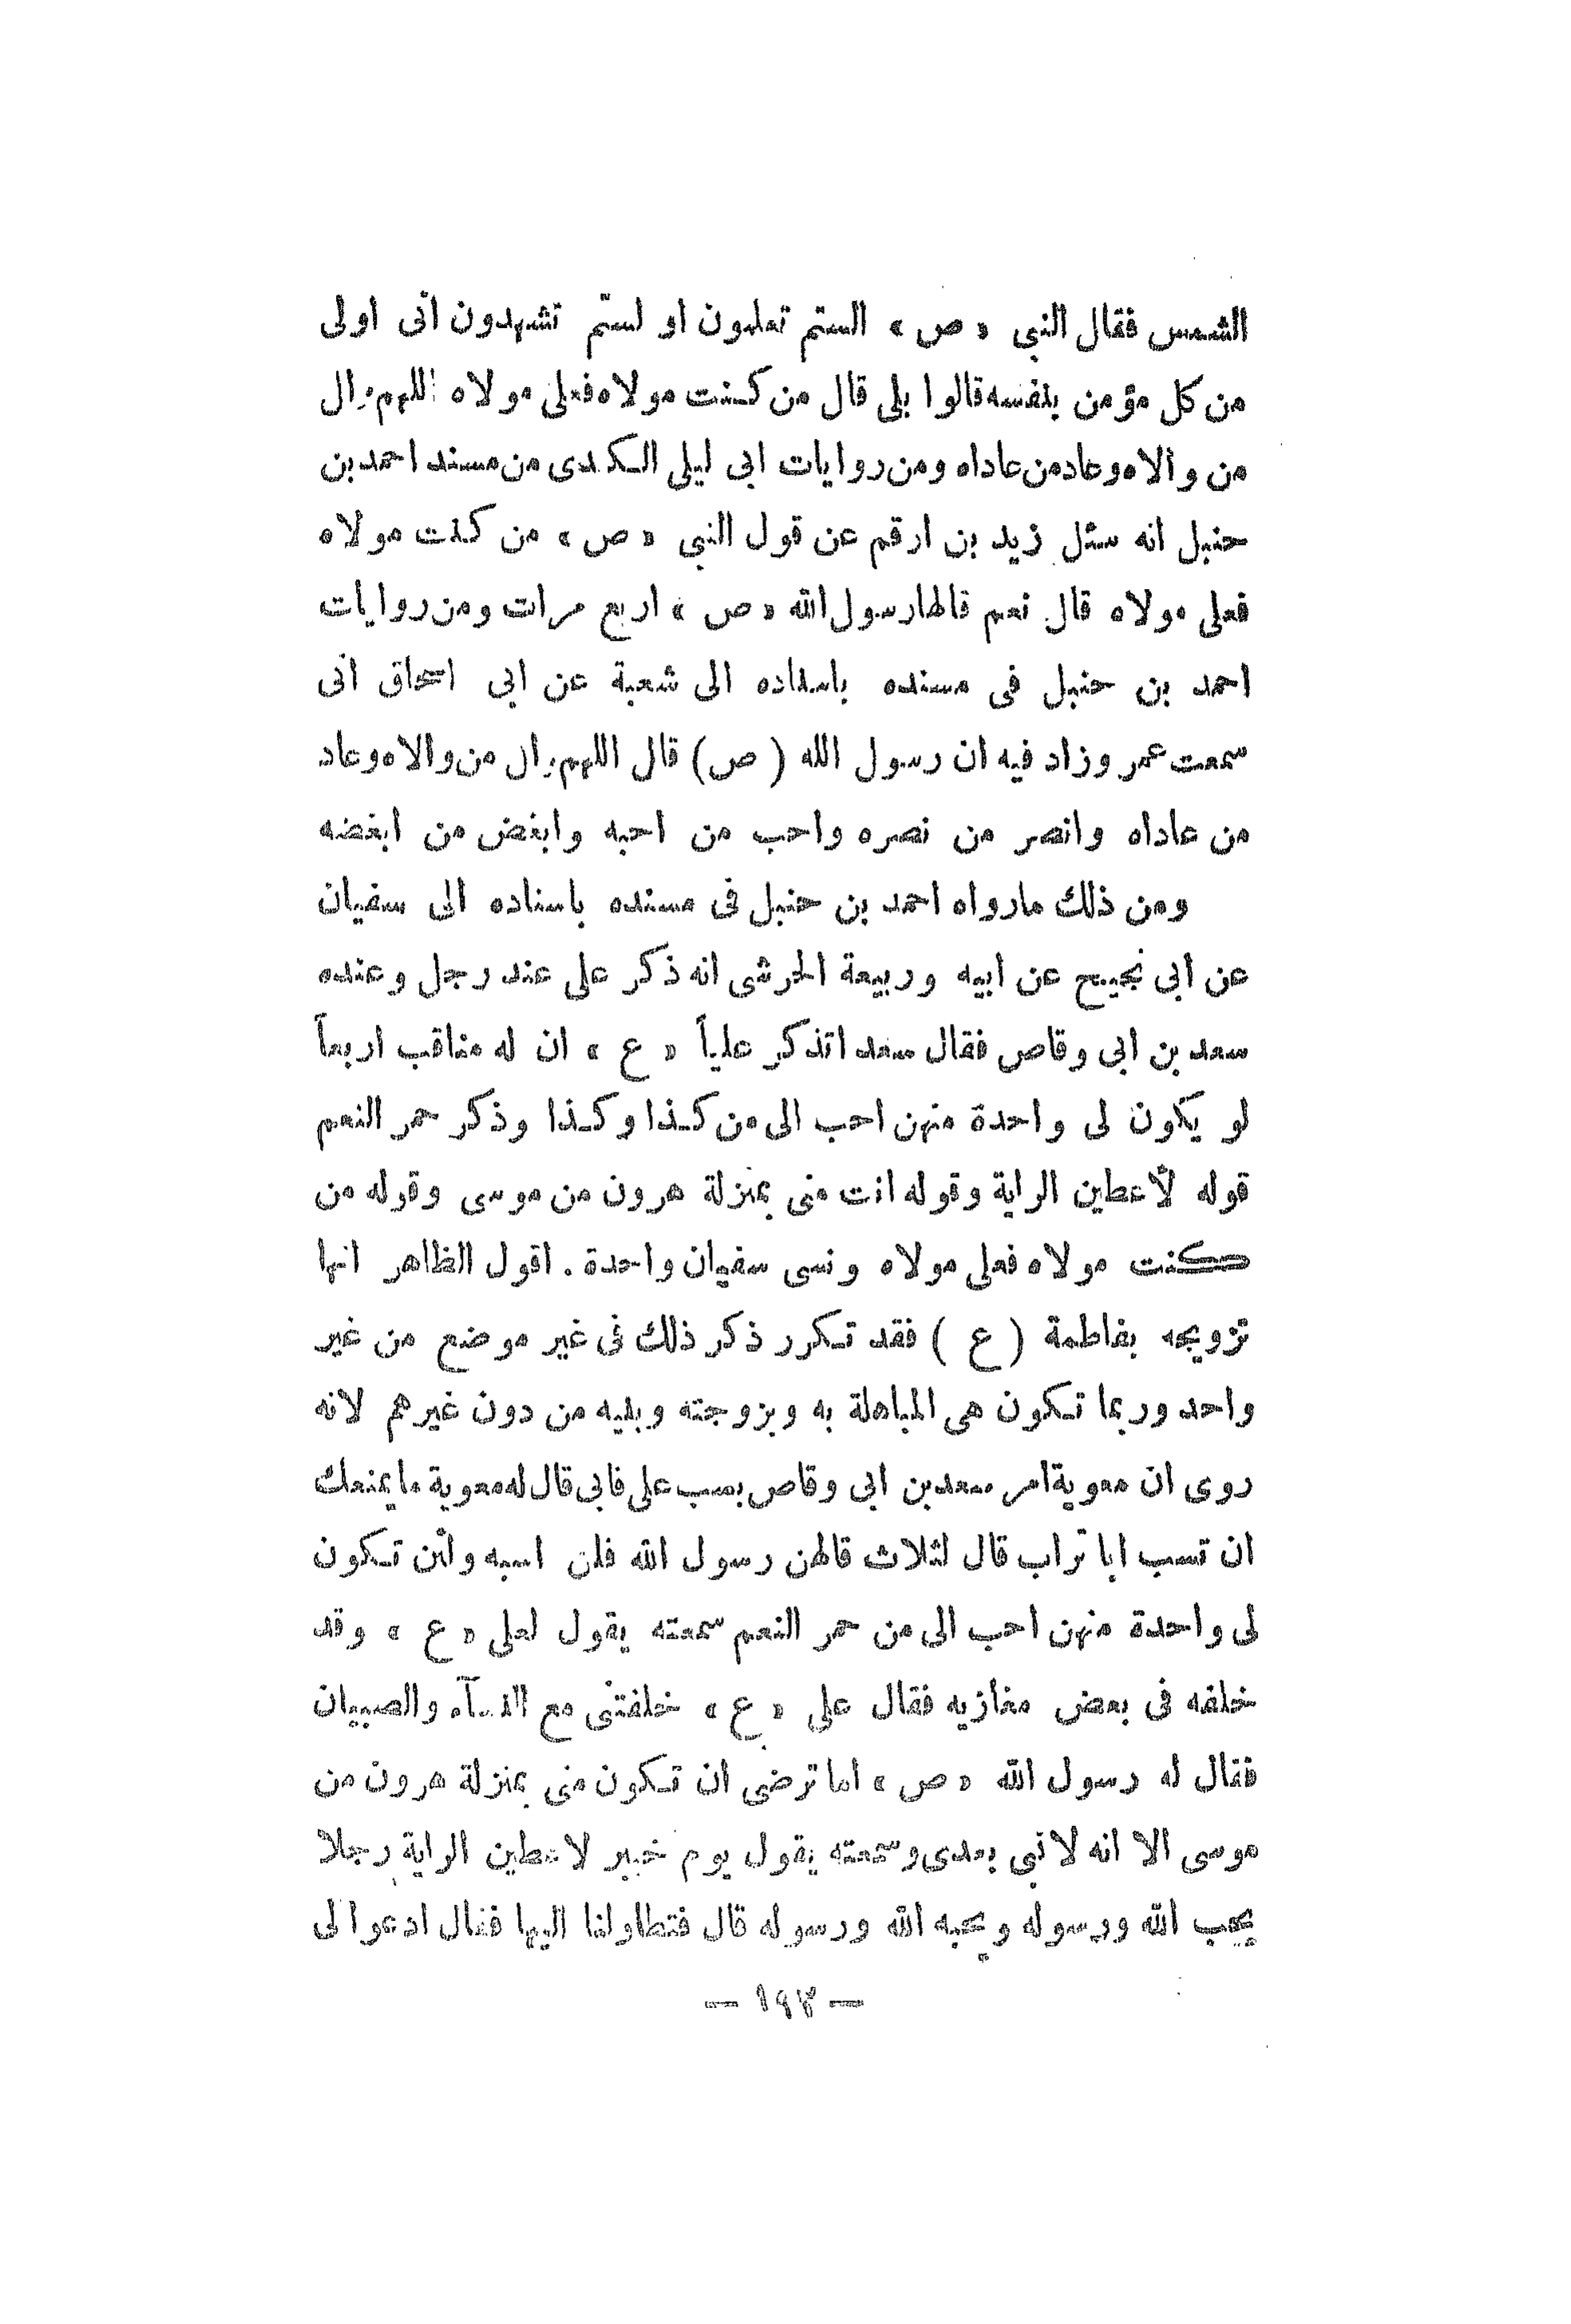 الشمس فقال النبي « ص » الستم تعلمون او لستم تشهدون أنى اولى
من كل مؤمن بنفسه قالوا بلى قال من كنت مولاه فعلى مولاه اللهم وال
من والاه وعاد من عاداه ومن روايات ابى ليلى الكندى من مسند احمد بن
حنبل انه سئل زيد بن ارقم عن قول النبي « ص » من كنت مولاه
فعلى مولاه قال نعم قالها رسول الله « ص » اربع مرات ومن روايات
احمد بن حنبل فى مسنده باسناده الى شعبة عن ابى اسحاق انى
سمعت عمر وزاد فيه ان رسول الله ( ص ) قال اللهم وال من والاه وعاد
من عاداه وانصر من نصره واحب من احبه وابغض من ابغضه
ومن ذلك مارواه احمد بن حنبل فى مسنده باسناده الى سفيان
عن ابى نجيح عن ابيه وربيعة الحرشى انه ذكر على عند رجل وعنده
سعد بن ابى وقاص فقال سعد اتذكر علياً « ع » ان له مناقب اربعاً
لو يكون لى واحدة منهن احب الى من كذا وكذا وذكر حمر النعم
قوله لأعطين الراية وقوله انت منى بمنزلة هرون من موسى وقوله من
كنت مولاه فعلى مولاه ونسى سفيان واحدة . اقول الظاهر انها
تزويجه بفاطمة ( ع ) فقد تكرر ذكر ذلك فى غير موضع من غير
واحد وربما تكون هى المباهلة به وبزوجته وبنيه من دون غيرهم لانه
روى ان معوية امر سعد بن ابى وقاص بسب على فابى قال له معوية ما يمنعك
ان تسب ابا تراب قال لثلاث قالهن رسول الله فلن اسبه ولئن تكون
لى واحدة منهن احب الى من حمر النعم سمعته يقول لعلى « ع » وقد
خلفه فى بعض مغازيه فقال على « ع » خلفتنى مع النسآء والصبيان
فقال له رسول الله « ص » اما ترضى ان تكون منى بمنزلة هرون من
موسى الا انه لا نبى بعدى وسمعته يقول يوم خيبر لاعطين الراية رجلا
يحب الله ورسوله ويحبه الله ورسوله قال فتطاولنا اليها فقال ادعوا لى
— ١٩٣ —